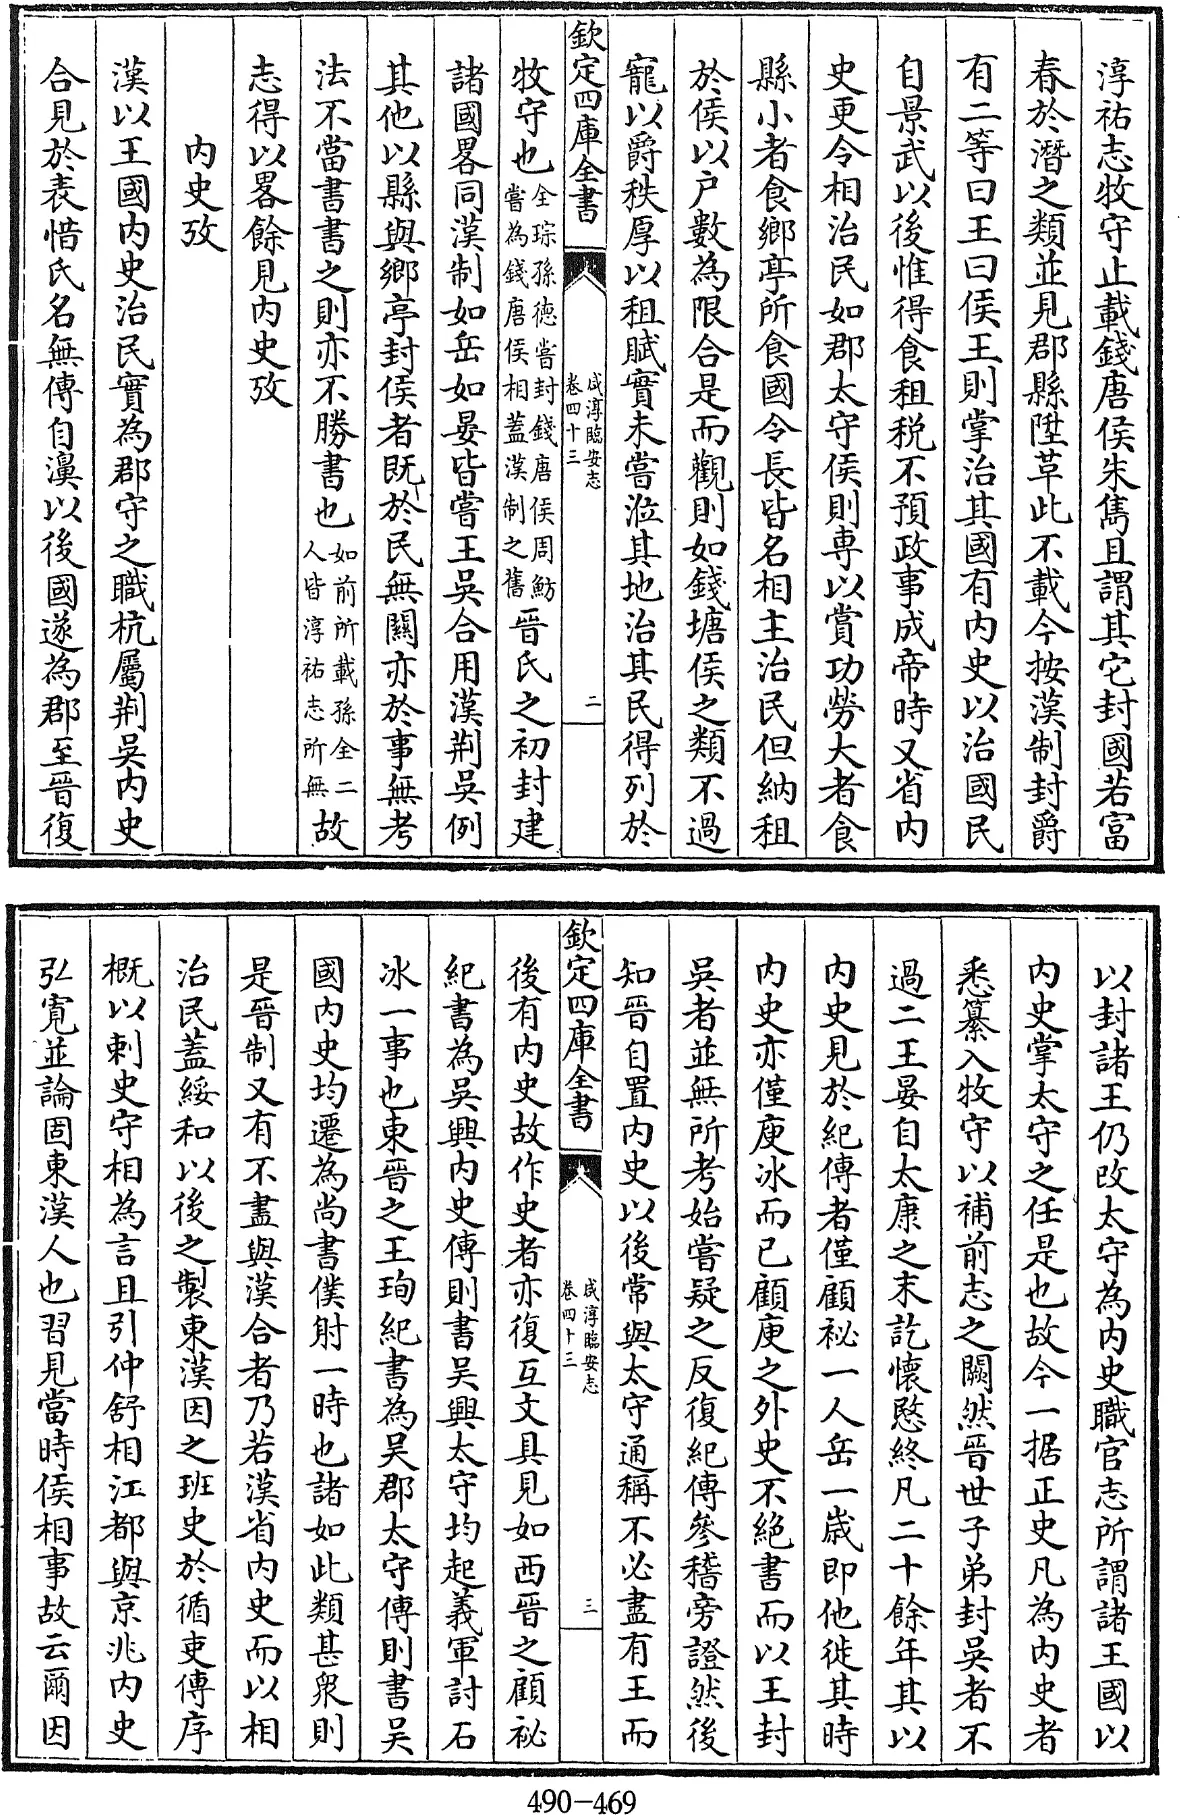 淳祐志牧守止載錢唐侯朱雋且謂其它封國若富
春於潛之類並見郡縣陞革此不載今按漢制封爵
有二等曰王曰侯王則掌治其國有内史以治國民
自景武以後惟得食租税不預政事成帝時又省内
史更令相治民如郡太守侯則専以賞功勞大者食
縣小者食鄉亭所食國令長皆名相主治民但納租
於侯以户數為限合是而觀則如錢塘侯之類不過
寵以爵秩厚以租賦實未嘗涖其地治其民得列於
欽定四庫全書
咸淳臨安志
卷四十三
二
牧守也全琮孫徳嘗封錢唐侯周魴嘗為錢唐侯相蓋漢制之舊晉氏之初封建
諸國畧同漢制如岳如晏皆嘗王吳合用漢荆吳例
其他以縣與鄉亭封侯者既於民無關亦於事無考
法不當書書之則亦不勝書也如前所載孫全二人皆淳祐志所無故
志得以畧餘見内史攷
内史攷
漢以王國内史治民實為郡守之職杭屬荆吳内史
合見於表惜氏名無傳自濞以後國遂為郡至晉復
以封諸王仍改太守為内史職官志所謂諸王國以
内史掌太守之任是也故今一据正史凡為内史者
悉纂入牧守以補前志之闕然晉世子弟封吳者不
過二王晏自太康之末訖懷愍終凡二十餘年其以
内史見於紀傳者僅顧祕一人岳一歲即他徙其時
内史亦僅庾冰而已顧庾之外史不絶書而以王封
吳者並無所考始嘗疑之反復紀傳參稽旁證然後
知晉自置内史以後常與太守通稱不必盡有王而
欽定四庫全書
咸淳臨安志
卷四十三
三
後有内史故作史者亦復互文具見如西晉之顧祕
紀書為吳興内史傳則書吳興太守均起義軍討石
冰一事也東晉之王珣紀書為吳郡太守傳則書吳
國内史均遷為尚書僕射一時也諸如此類甚衆則
是晉制又有不盡與漢合者乃若漢省内史而以相
治民蓋綏和以後之製東漢因之班史於循吏傳序
概以刺史守相為言且引仲舒相江都與京兆内史
弘寬並論固東漢人也習見當時侯相事故云爾因
490-469